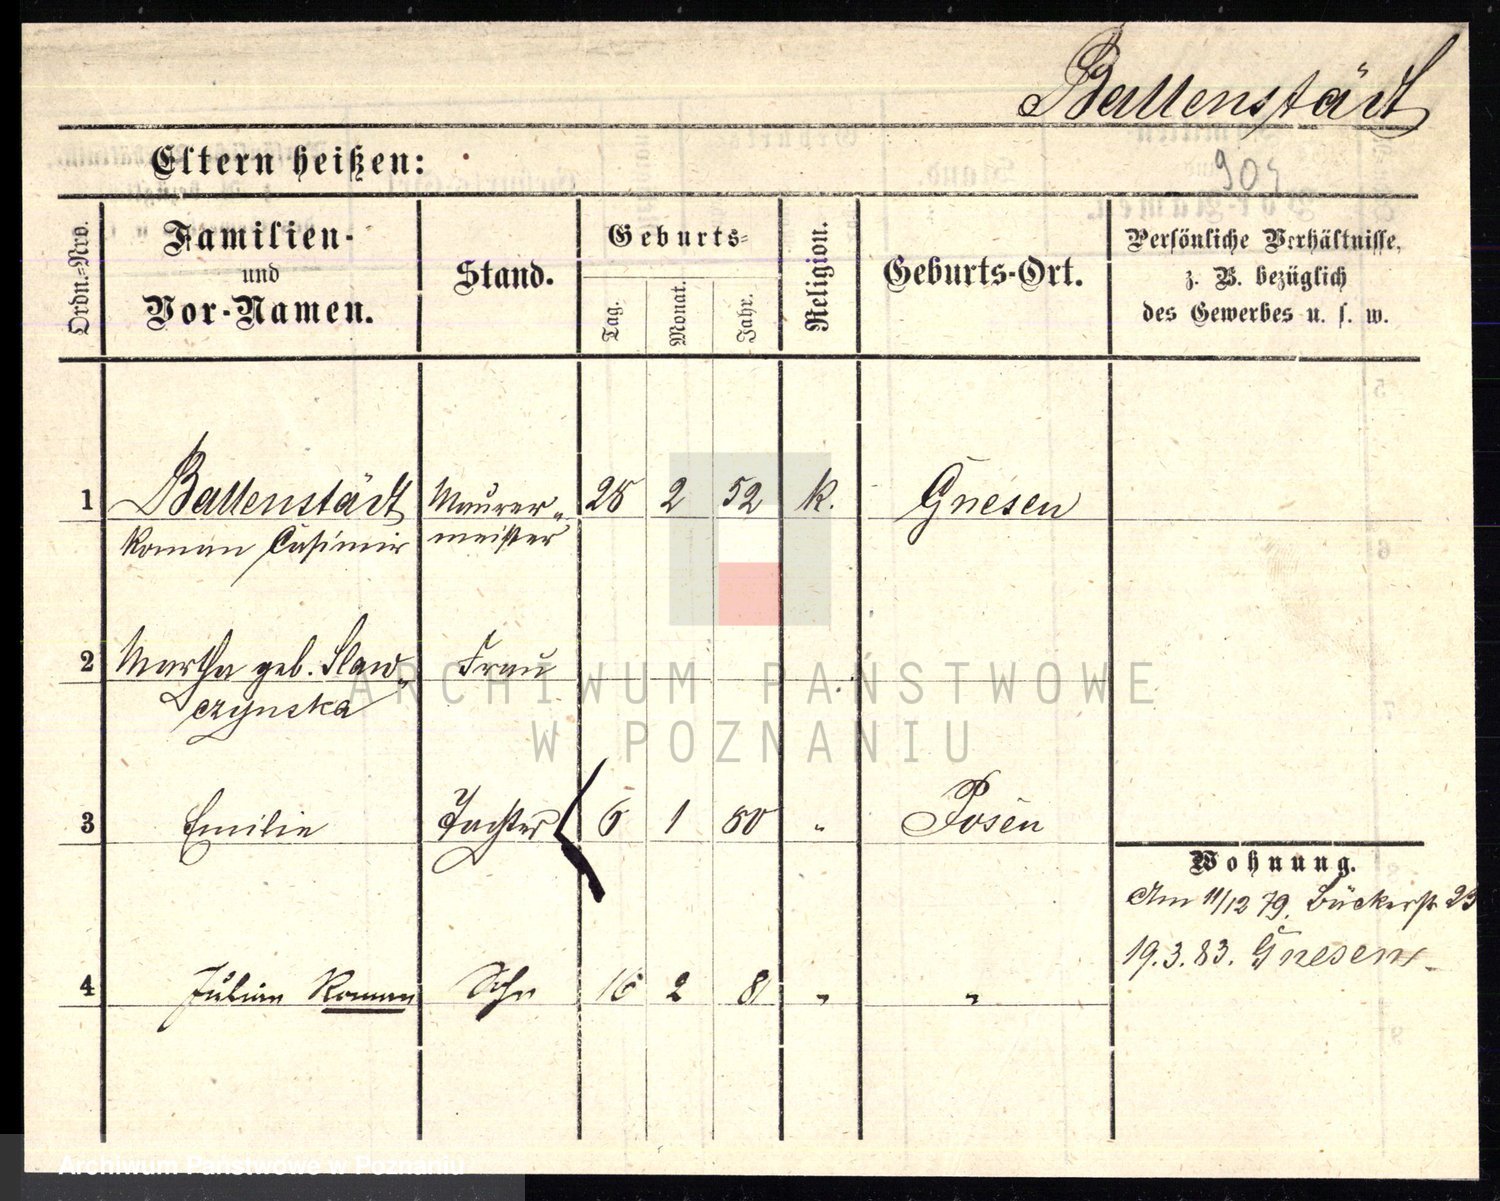 Ballenstädt
905
Eltern heißen:
Ordn.=Nro.
Familien-
und
Vor-Namen.
Stand.
Geburts=
Tag.
Monat.
Jahr.
Religion.
Geburts-Ort.
Persönliche Verhältnisse,
z. B. bezüglich
des Gewerbes u. s. w.
1 Ballenstädt Maurer= 28 2 52 k. Gnesen
Roman Casimir meister
2 Martha geb. Slaw= Frau
czynska
3 Emilie Tochter 6 1 80 " Posen
Wohnung.
Am 11/12 79. Bäckerstr 23
19.3.83. Gnesen.
4 Julian Roman Sohn 16 2 8 " "
ARCHIWUM PAŃSTWOWE
W POZNANIU
Archiwum Państwowe w Poznaniu